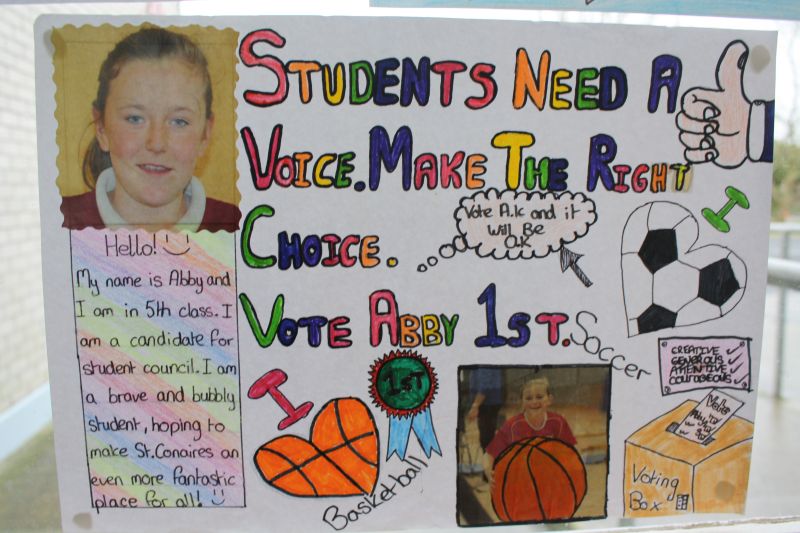 STUDENTS NEED A
VOICE. MAKE THE RIGHT
CHOICE.
Vote A.K and it
Will Be
O.K
VOTE ABBY 1ST.
Hello!
My name is Abby and
I am in 5th class. I
am a candidate for
student council. I am
a brave and bubbly
student, hoping to
make St. Conaires an
even more fantastic
place for all!
I
Basketball
1ST
I
Soccer
CREATIVE
GENEROUS
ATTENTIVE
COURAGEOUS
Vote
Abby
Voting
Box